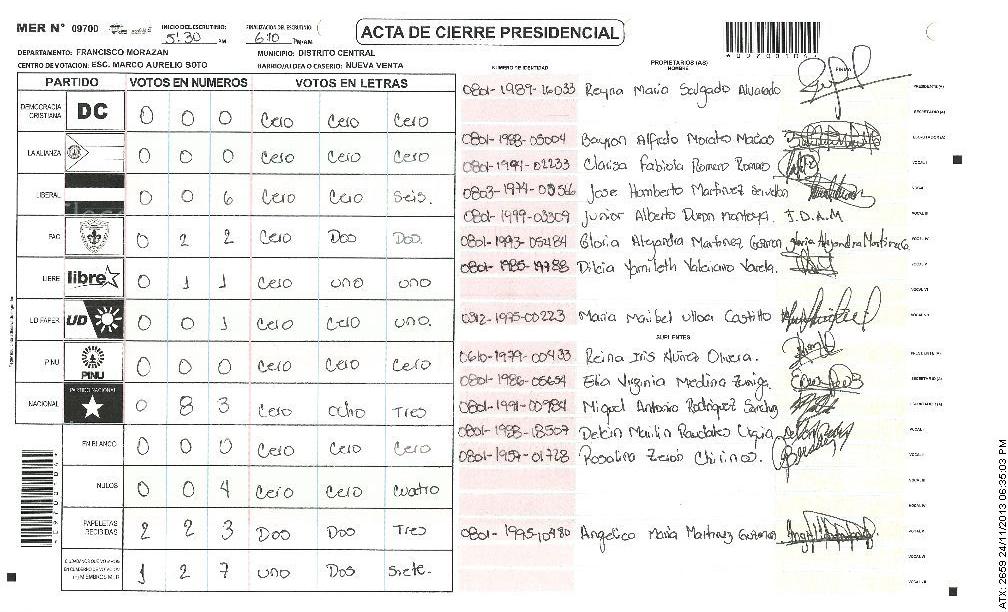 MER N° 09700
INICIO DEL ESCRUTINIO
5:30 PM
FINALIZACION DEL ESCRUTINIO
6:10 PM/AM
ACTA DE CIERRE PRESIDENCIAL
DEPARTAMENTO: FRANCISCO MORAZAN
MUNICIPIO: DISTRITO CENTRAL
CENTRO DE VOTACION: ESC. MARCO AURELIO SOTO
BARRIO/ALDEA O CASERIO: NUEVA VENTA
PARTIDO VOTOS EN NUMEROS VOTOS EN LETRAS
DEMOCRACIA CRISTIANA DC 0 0 0 Cero Cero Cero
LA ALIANZA 0 0 0 Cero Cero Cero
LIBERAL 0 0 6 Cero Cero Seis.
PAC 0 2 2 Cero Dos Dos.
LIBRE libre 0 1 1 Cero uno uno
UD FAPER UD 0 0 1 Cero Cero uno.
PINU PINU 0 0 0 Cero Cero Cero
NACIONAL PARTIDO NACIONAL 0 8 3 Cero ocho Tres
EN BLANCO 0 0 0 Cero Cero Cero
NULOS 0 0 4 Cero Cero Cuatro
PAPELETAS RECIBIDAS 2 2 3 Dos Dos Tres
(+) MIEMBROS MER 1 2 7 uno Dos siete.
NUMERO DE IDENTIDAD
PROPIETARIOS (AS)
NOMBRE
FIRMA
0801-1989-16033 Reyna Maria Salgado Alvarado PRESIDENTE (A)
SECRETARIO (A)
0801-1988-03004 Bayron Alfredo ESCRUTADOR (A)
0801-1991-02233 Clarisa Fabiola Romero Romero VOCAL I
0803-1974-00516 Jose Humberto Martinez
0801-1999-03309 Junior Alberto Duron Montoya J.D.A.M VOCAL III
0801-1993-05484 Gloria Alejandra Martinez Guzman Gloria Alejandra Martinez G VOCAL IV
0801-1985-19788 Dilcia Yamileth Valeriano Varela. VOCAL V
VOCAL VI
Maria Maribel Ulloa Castillo VOCAL VII
SUPLENTES
0610-1979-00433 Reina Iris Nuñez Olivera. PRESIDENTE (A)
0801-1986-05654 Elia Virginia Medina Zuniga. SECRETARIO (A)
0801-1991-00984 Miguel Antonio Rodriguez Sanchez ESCRUTADOR (A)
0801-1988-18507 VOCAL I
0801-1957-01728 Rosalina VOCAL II
VOCAL III
VOCAL IV
0801-1995-10480 Angelica Maria Martinez Guzman VOCAL V
VOCAL VI
VOCAL VII
ATX: 2659 24/11/2013 06:35:03 PM